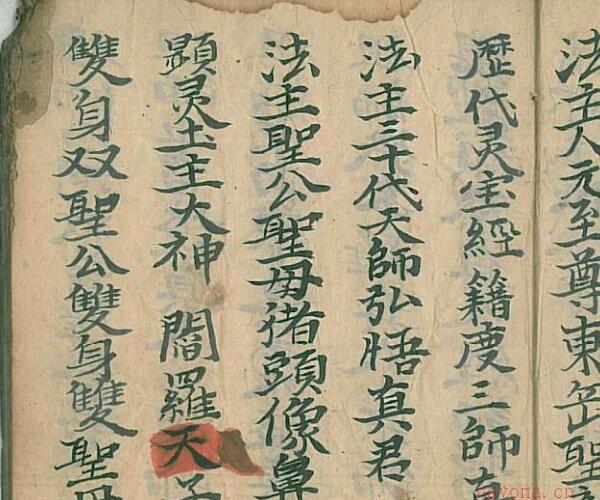 法主人元至尊東岳聖
歷代灵宝經籍度三師
法主三十代天師弘悟真君
法主聖公聖母猪頭像鼻
顕灵土主大神 閻羅天子
雙身双聖公雙身雙聖母